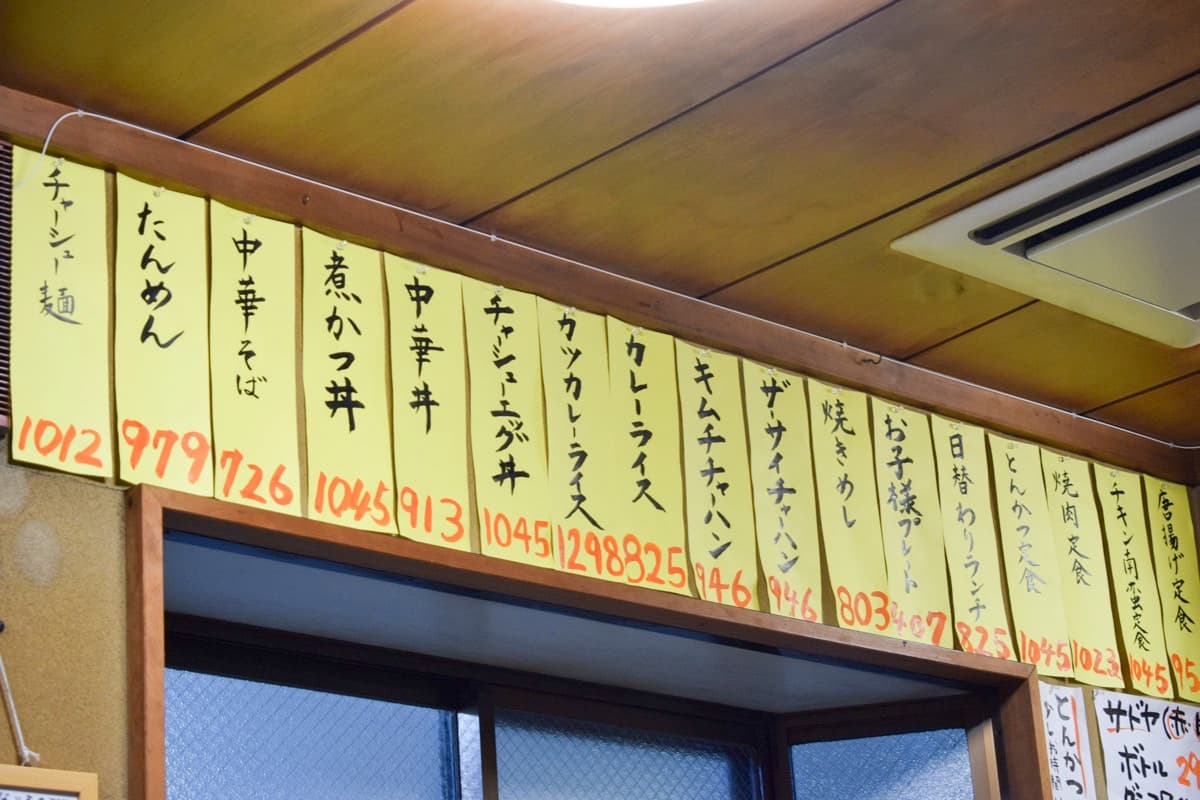 チャーシュー麺
1012
たんめん
979
中華そば
726
煮かつ丼
1045
中華丼
913
チャーシューエッグ丼
1045
カツカレーライス
1298
カレーライス
825
キムチチャーハン
946
ザーサイチャーハン
946
焼きめし
803
お子様プレート
907
日替わりランチ
825
とんかつ定食
1045
焼肉定食
1023
チキン南蛮定食
1045
唐揚げ定食
95
とんかつ
サドヤ(赤・
ボトル 29